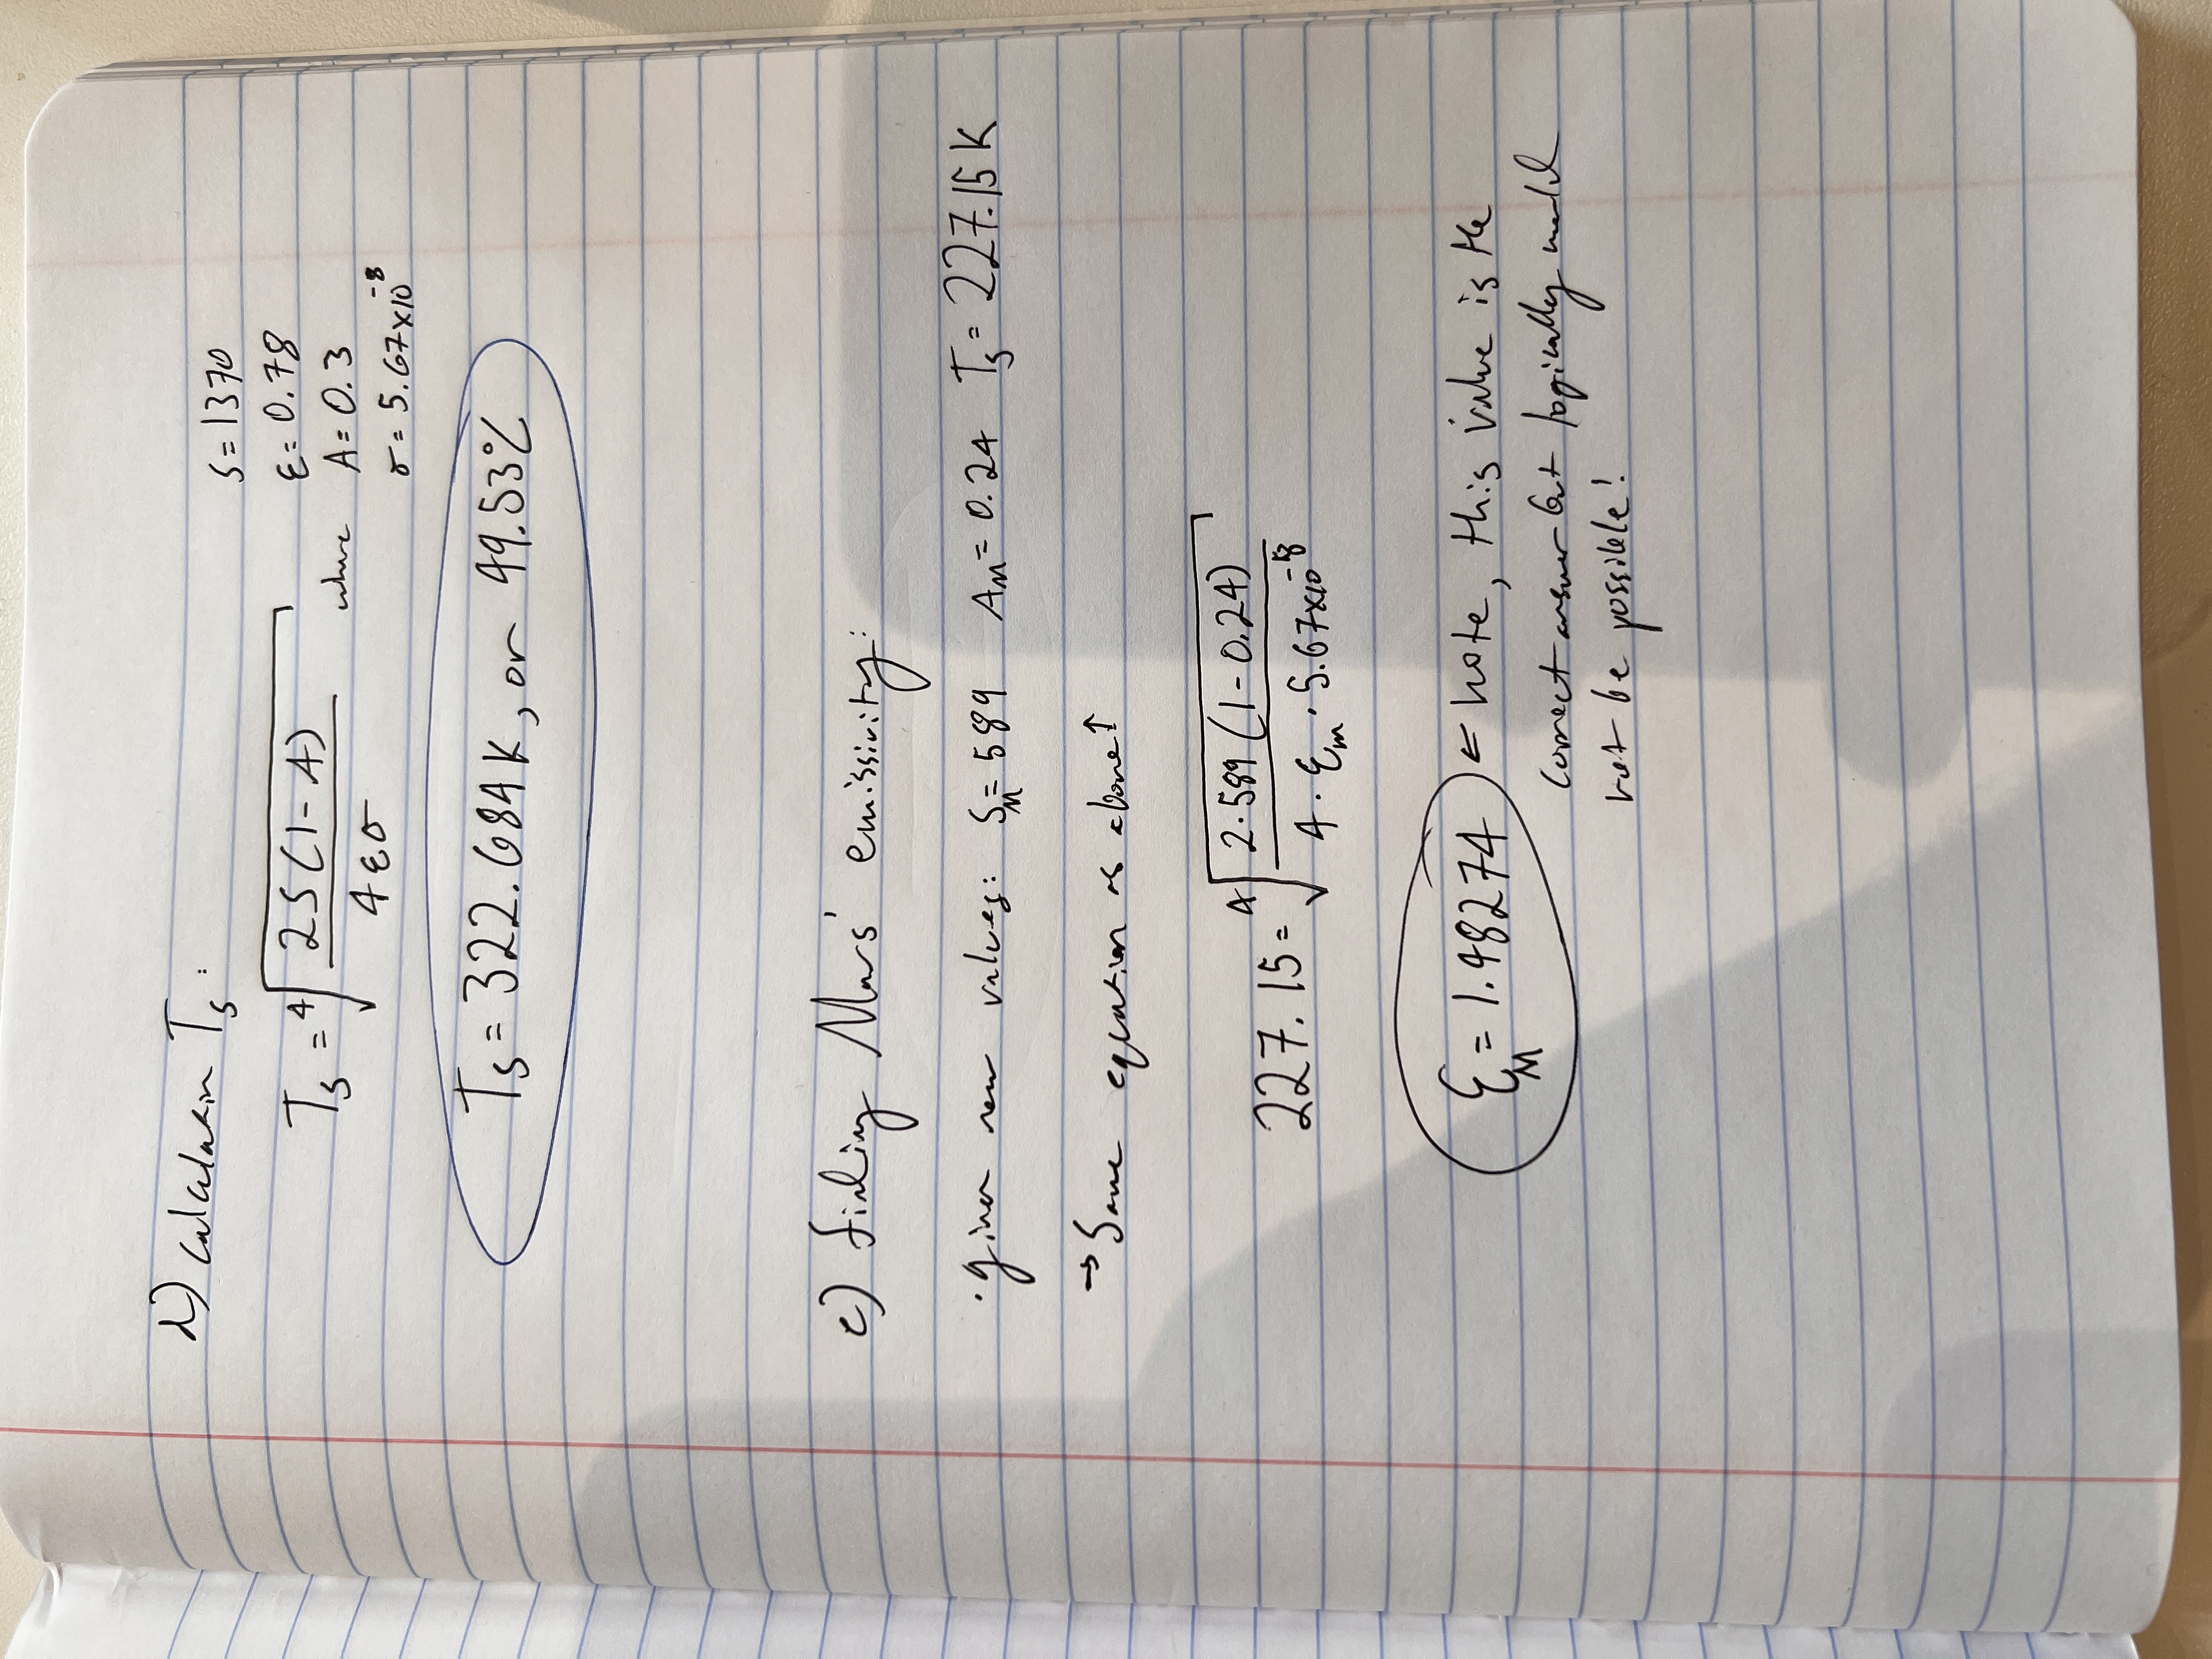 d) calculation Tₛ:
S = 1370
ε = 0.78
Tₛ = ⁴√(2S(1-A) / 4εσ) where A = 0.3
σ = 5.67x10⁻⁸
Tₛ = 322.684K, or 49.53°C
e) finding Mars' emissivity:
· given new values: S_M = 589 A_M = 0.24 Tₛ = 227.15 K
→ Same equation as above ↑
227.15 = ⁴√(2·589 (1-0.24) / 4 · ε_m · 5.67x10⁻⁸)
ε_M = 1.48274 ← Note, this value is the
correct answer but logically would
not be possible!